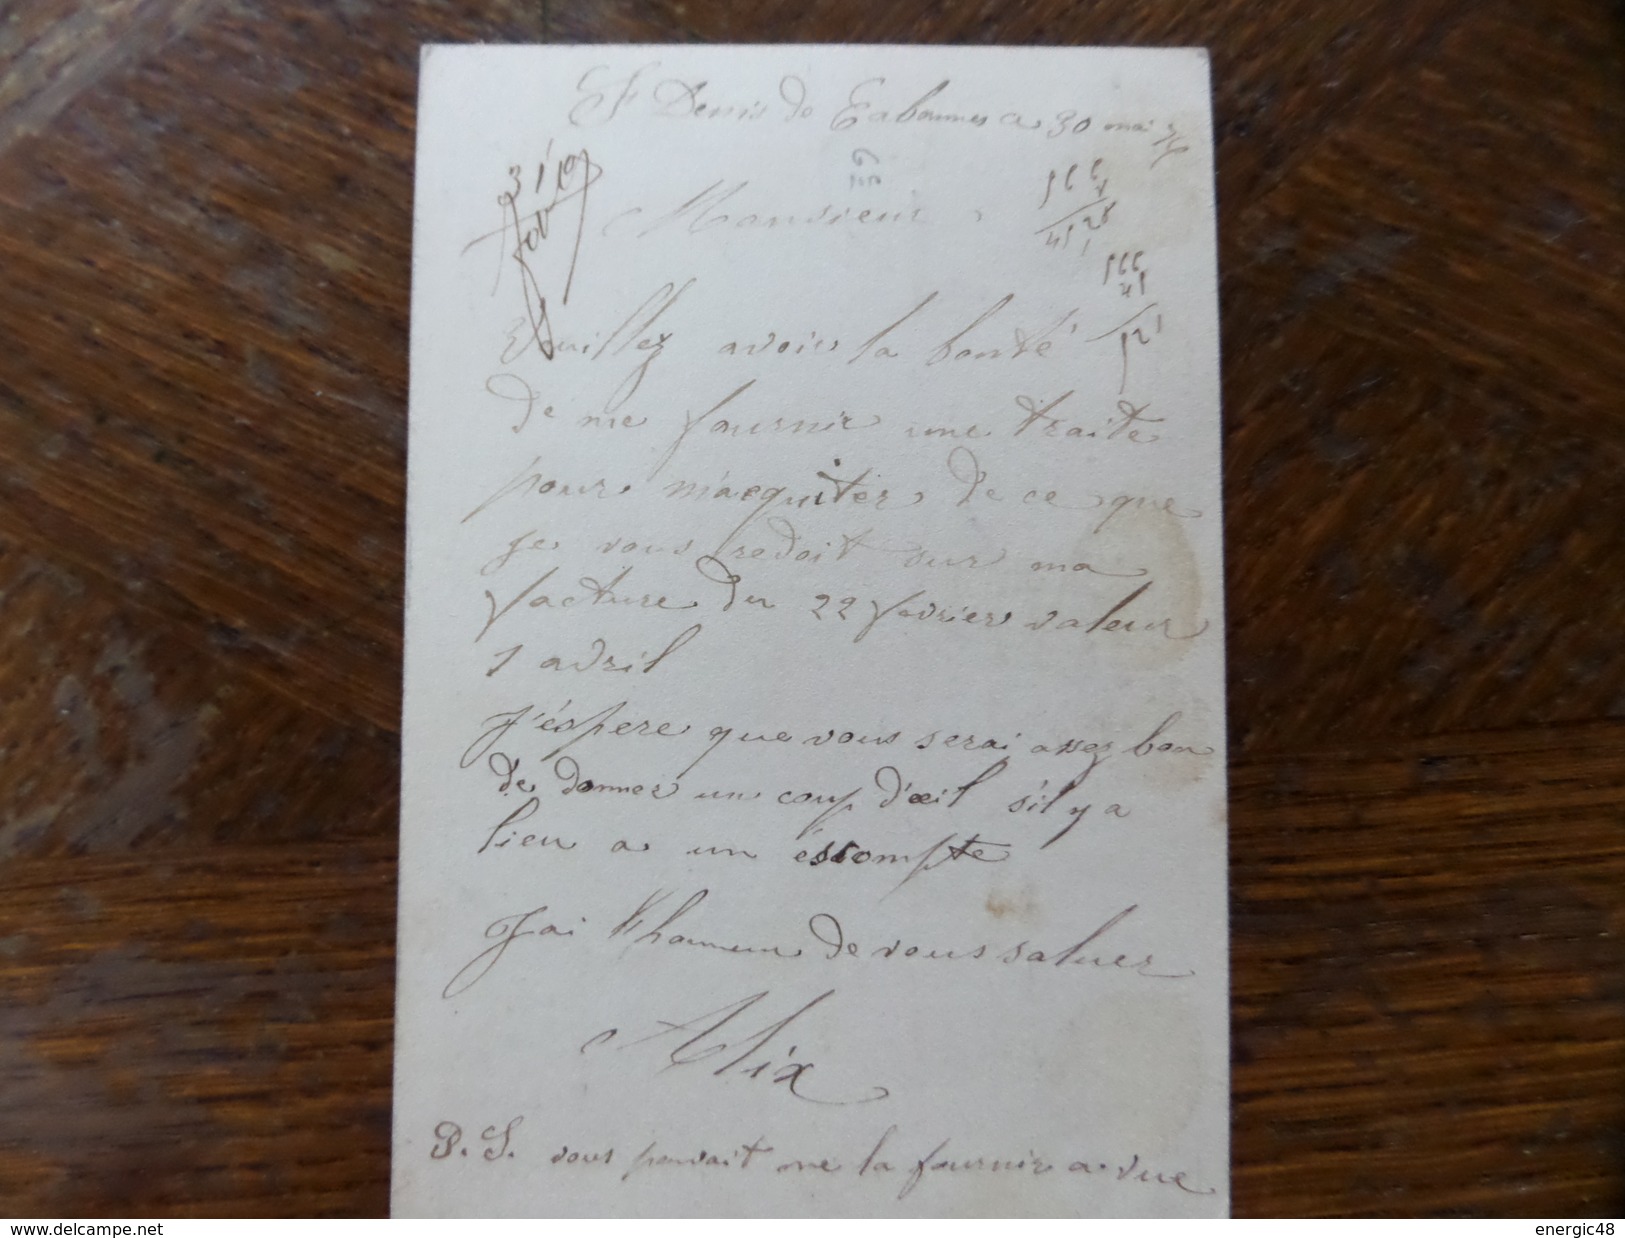 St Denis de Cabannes a 30 mai 76
Monsieur
Veuillez avoir la bonté
de me fournir une traite
pour m'acquiter de ce que
je vous redoit sur ma
facture du 22 fevrier valeur
1 avril
J'éspere que vous serai assez bon
de donner un coup d'œil s'il y a
lieu a un éscompte
J'ai l'honneur de vous saluer
Alix
P. S. vous pouvait me la fournir a vue
www.delcampe.net
energic48